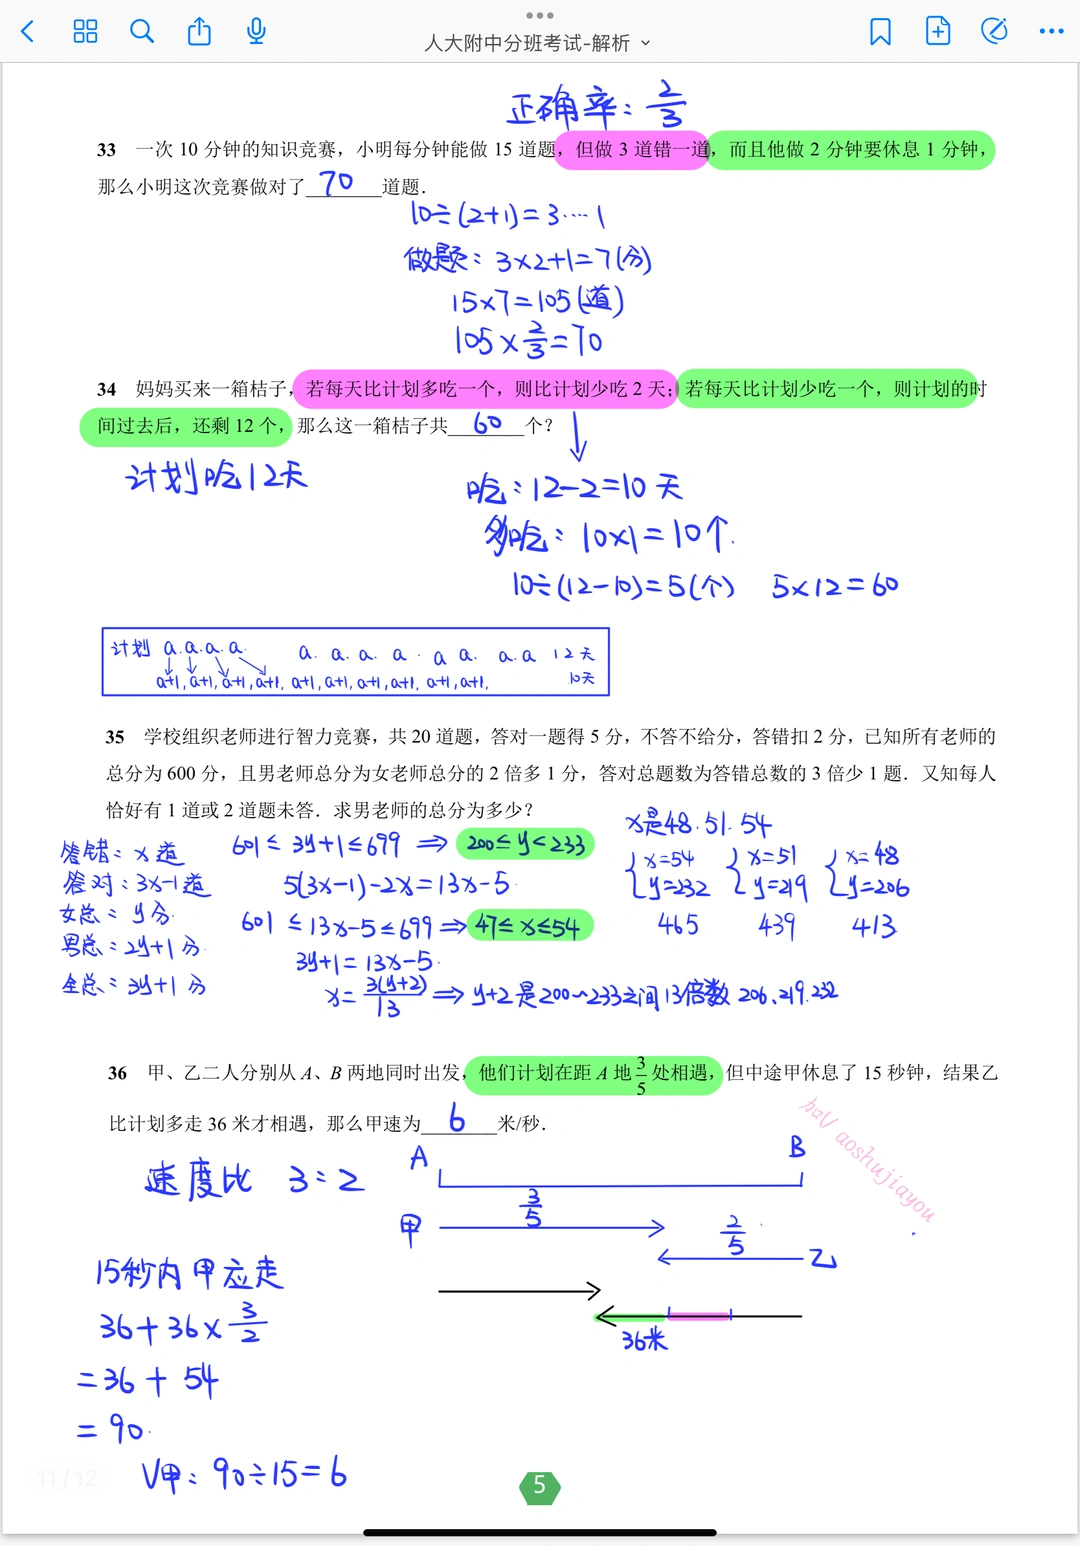 人大附中分班考试-解析
正确率：2/3
33 一次 10 分钟的知识竞赛，小明每分钟能做 15 道题，但做 3 道错一道，而且他做 2 分钟要休息 1 分钟，
那么小明这次竞赛做对了 70 道题．
10÷(2+1)=3…1
做题：3×2+1=7(分)
15×7=105(道)
105×2/3=70
34 妈妈买来一箱桔子，若每天比计划多吃一个，则比计划少吃 2 天；若每天比计划少吃一个，则计划的时
间过去后，还剩 12 个，那么这一箱桔子共 60 个？
计划吃12天
吃：12-2=10 天
多吃：10×1=10个.
10÷(12-10)=5(个) 5×12=60
计划 a.a.a.a. a. a. a. a. a a. a.a 12天
a+1,a+1,a+1,a+1,a+1,a+1,a+1,a+1,a+1,a+1, 10天
35 学校组织老师进行智力竞赛，共 20 道题，答对一题得 5 分，不答不给分，答错扣 2 分，已知所有老师的
总分为 600 分，且男老师总分为女老师总分的 2 倍多 1 分，答对总题数为答错总数的 3 倍少 1 题．又知每人
恰好有 1 道或 2 道题未答．求男老师的总分为多少？
答错：x 道
答对：3x-1道
女总：y分.
男总：2y+1 分.
全总：3y+1 分
601≤ 3y+1≤699 ⇒ 200≤y<233
5(3x-1)-2x=13x-5
601 ≤ 13x-5≤699 ⇒ 47≤x≤54
3y+1=13x-5.
x=3(y+2)/13 ⇒ y+2 是200~233之间13倍数 206、219.232
x是48.51.54
{x=54 {x=51 {x=48
y=232 y=219 y=206
465 439 413
36 甲、乙二人分别从 A、B 两地同时出发，他们计划在距 A 地3/5处相遇，但中途甲休息了 15 秒钟，结果乙
比计划多走 36 米才相遇，那么甲速为 6 米/秒．
速度比 3:2
A B
3/5
甲
2/5
乙
36米
15秒内甲应走
36+36×3/2
=36+54
=90.
V甲：90÷15=6
aoshujiayou
11 / 12
5